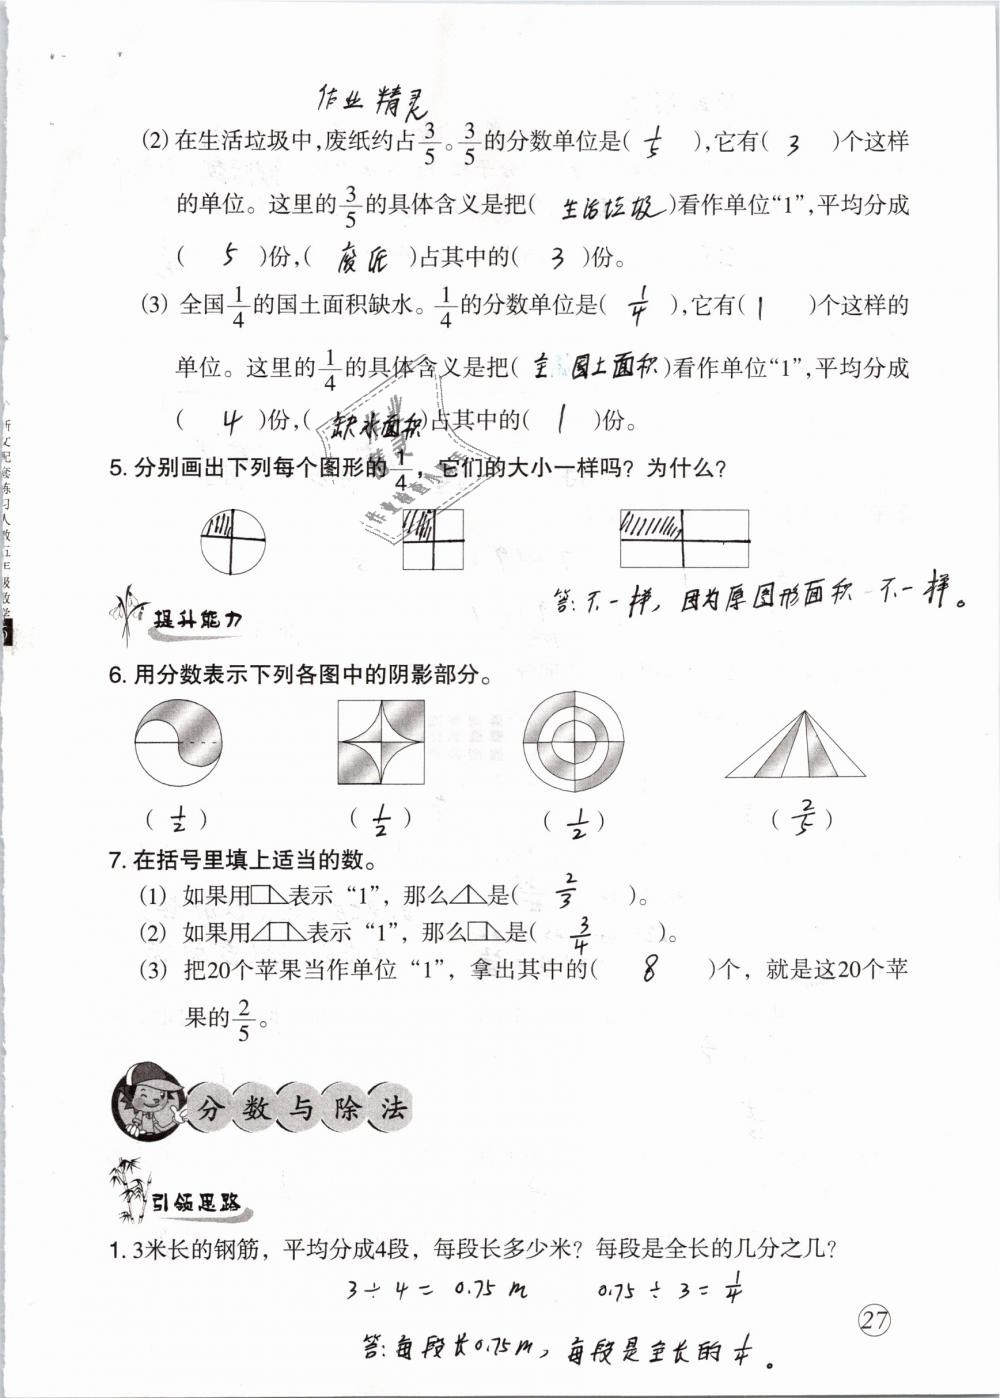 作业精灵
(2) 在生活垃圾中，废纸约占3/5。3/5的分数单位是( 1/5 )，它有( 3 )个这样
的单位。这里的3/5的具体含义是把( 生活垃圾 )看作单位“1”，平均分成
( 5 )份，( 废纸 )占其中的( 3 )份。
(3) 全国1/4的国土面积缺水。1/4的分数单位是( 1/4 )，它有( 1 )个这样的
单位。这里的1/4的具体含义是把( 全国土面积 )看作单位“1”，平均分成
( 4 )份，( 缺水面积 )占其中的( 1 )份。
5. 分别画出下列每个图形的1/4，它们的大小一样吗？为什么？
答：不一样，因为原图形面积不一样。
提升能力
6. 用分数表示下列各图中的阴影部分。
( 1/2 ) ( 1/2 ) ( 1/2 ) ( 2/5 )
7. 在括号里填上适当的数。
(1) 如果用表示“1”，那么是( 2/3 )。
(2) 如果用表示“1”，那么是( 3/4 )。
(3) 把20个苹果当作单位“1”，拿出其中的( 8 )个，就是这20个苹
果的2/5。
分数与除法
引领思路
1. 3米长的钢筋，平均分成4段，每段长多少米？每段是全长的几分之几？
3÷4=0.75m 0.75÷3=1/4
答：每段长0.75m，每段是全长的1/4。
27